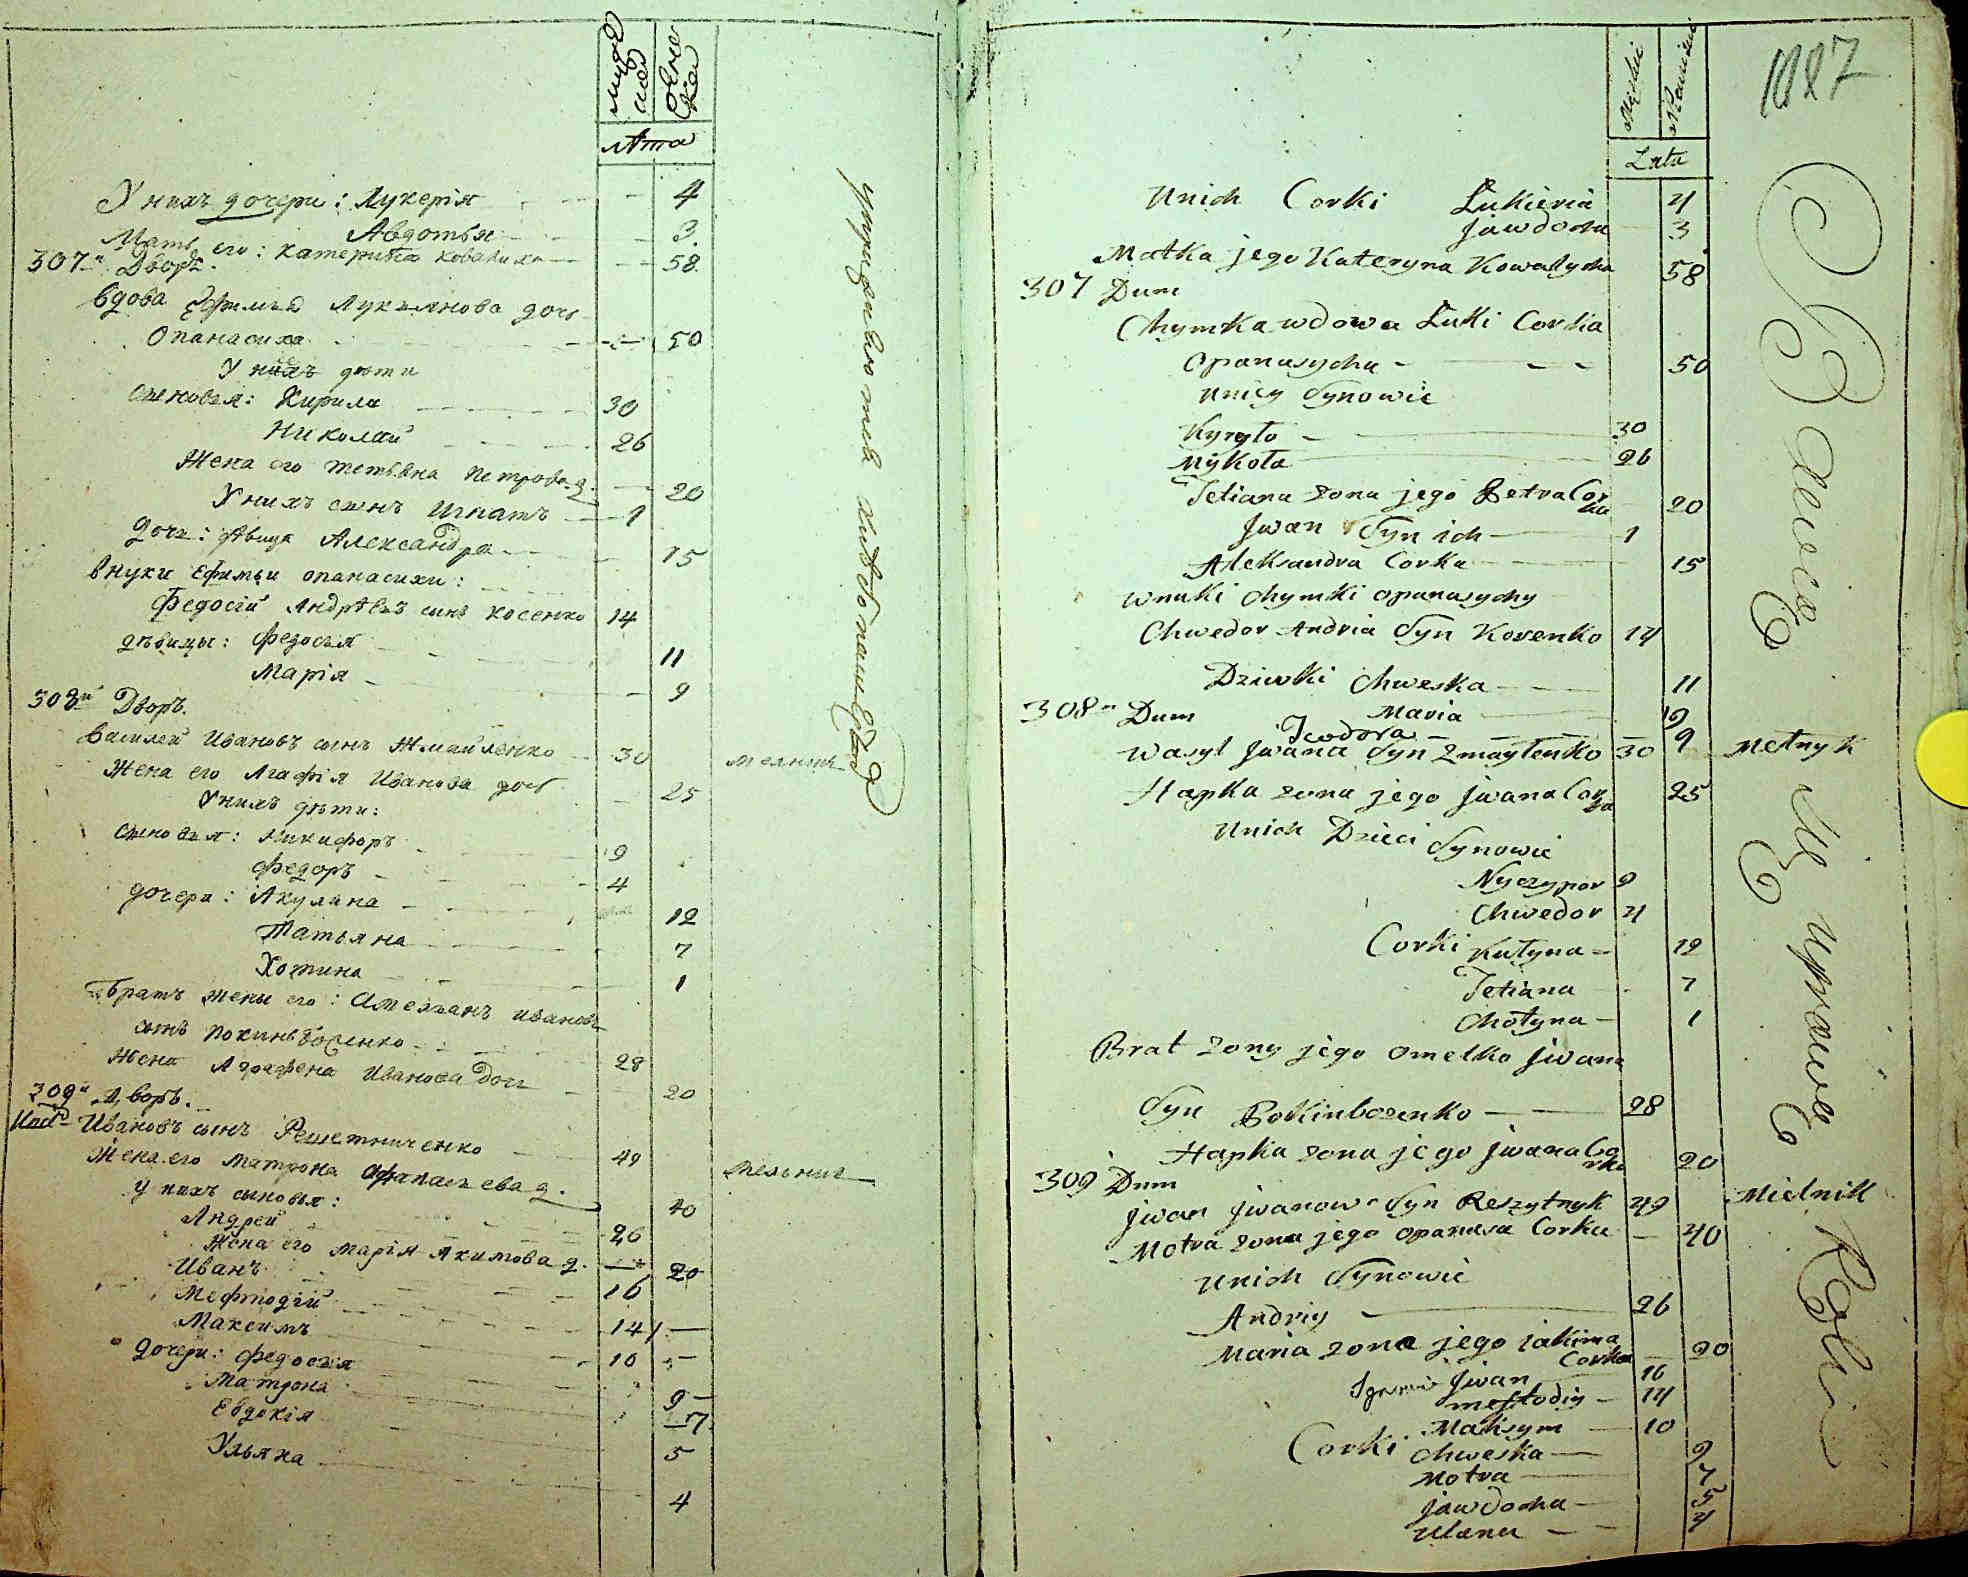 мужеска
женска
лѣта
У нихъ дочери: Лукерія 4
Авдотья 3
Мать его: Катерина Ковалиха 58
307й Дворъ.
вдова Ефимья Лукьянова дочь
Опанасиха 50
У ней дѣти
сыновья: Кирила 30
Николай 26
Жена его Тетьяна Петрова д. 20
У нихъ сынъ Игнатъ 1
дочь: дѣвица Александра 15
внуки Ефимьи Опанасихи:
Федосій Андрѣевъ сынъ Косенко 14
дѣвицы: Федосья 11
Марія 9
308й Дворъ.
Василей Ивановъ сынъ Жмайленко 30
Жена его Агафія Иванова дочь 25
У нихъ дѣти:
сыновья: Никифоръ 9
Федоръ 4
дочери: Акулина 12
Татьяна 7
Хотина 1
Братъ жены его: Омельянъ Ивановъ
сынъ Покиньбосенко 28
Жена Аграфена Иванова дочь 20
309й Дворъ.
Ивановъ сынъ Решетниченко 49
Жена его Матрона Афанасьева д. 40
У нихъ сыновья:
Андрей 26
Жена его Марія Акимова д. 20
Иванъ 16
Мефтодій 14
Максимъ 10
дочери: Федосья 9
Матрона 7
Евдокія 5
Ульяна 4
упражняются хлѣбопашествомъ
мельникъ
мельникъ
Męskie
Żeńskie
Lata
1887
Unich Corki Łukieria 4
Jawdocha 3
Matka jego Kateryna Kowalycha 58
307 Dum
Chymka wdowa Łuki Corka
Opanasycha 50
Uniey Synowie
Kyryło 30
Mykoła 26
Tetiana zona jego Petra Corka 20
Jwan Syn ich 1
Aleksandra Corka 15
Wnuki Chymki Opanasychy
Chwedor Andria Syn Kosenko 14
Dziewki Chweska 11
Maria 9
Teodora 9
308 Dum
Wasyl Jwana Syn Zmaylenko 30 Melnyk
Hapka zona jego Jwana Corka 25
Unich Dzieci Synowie
Nyczypor 9
Chwedor 4
Corki Kułyna 12
Tetiana 7
Chotyna 1
Brat zony jego Omelko Jwana
Syn Pokinbozenko 28
Hapka zona jego Jwana Corka 20
309 Dum
Jwan Jwanow Syn Reszytnyk 49 Mielnik
Motra zona jego Opanasa Corka 40
Unich Synowie
Andriy 26
Maria zona jego Jakima Corka 20
Jwan 16
Meftodiy 14
Maksym 10
Corki Chweska 9
Motra 7
Jawdocha 5
Ulana 4
Roli